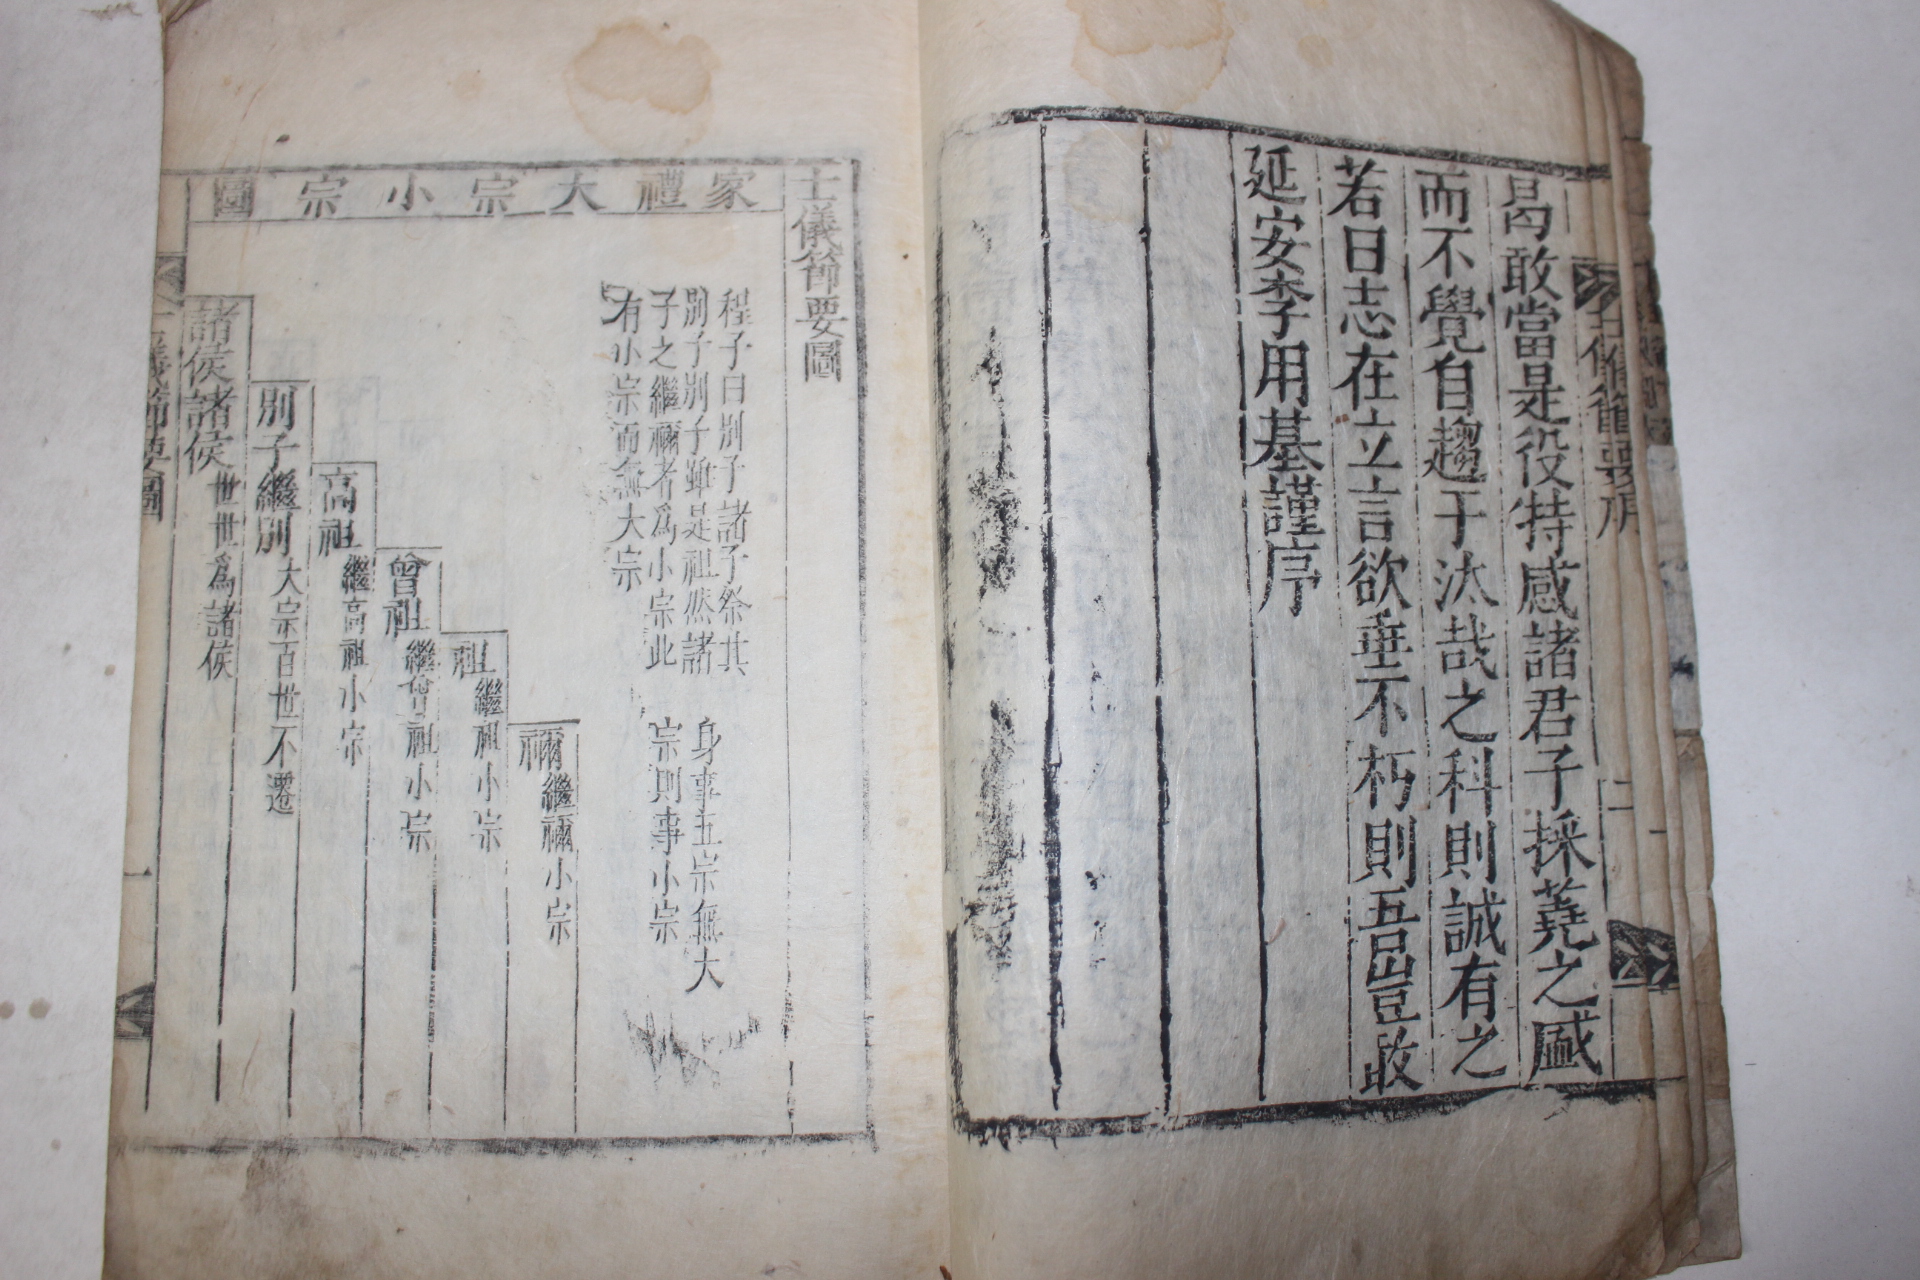 曷敢當是役特感諸君子採蕘之盛
而不覺自趨于汰哉之科則誠有之
若曰志在立言欲垂不朽則吾豈敢
延安李用基謹序
士儀節要序
二
士儀節要圖
家禮大宗小宗圖
程子曰別子諸子祭其
別子別子雖是祖然諸
子之繼禰者為小宗此
有小宗而無大宗
身事五宗無大
宗則事小宗
禰繼禰小宗
祖繼祖小宗
曾祖繼曾祖小宗
高祖繼高祖小宗
別子繼別大宗百世不遷
諸侯諸侯世世為諸侯
士儀節要圖
一